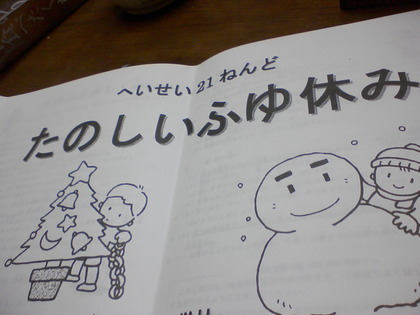 へいせい21ねんど
たのしいふゆ休み